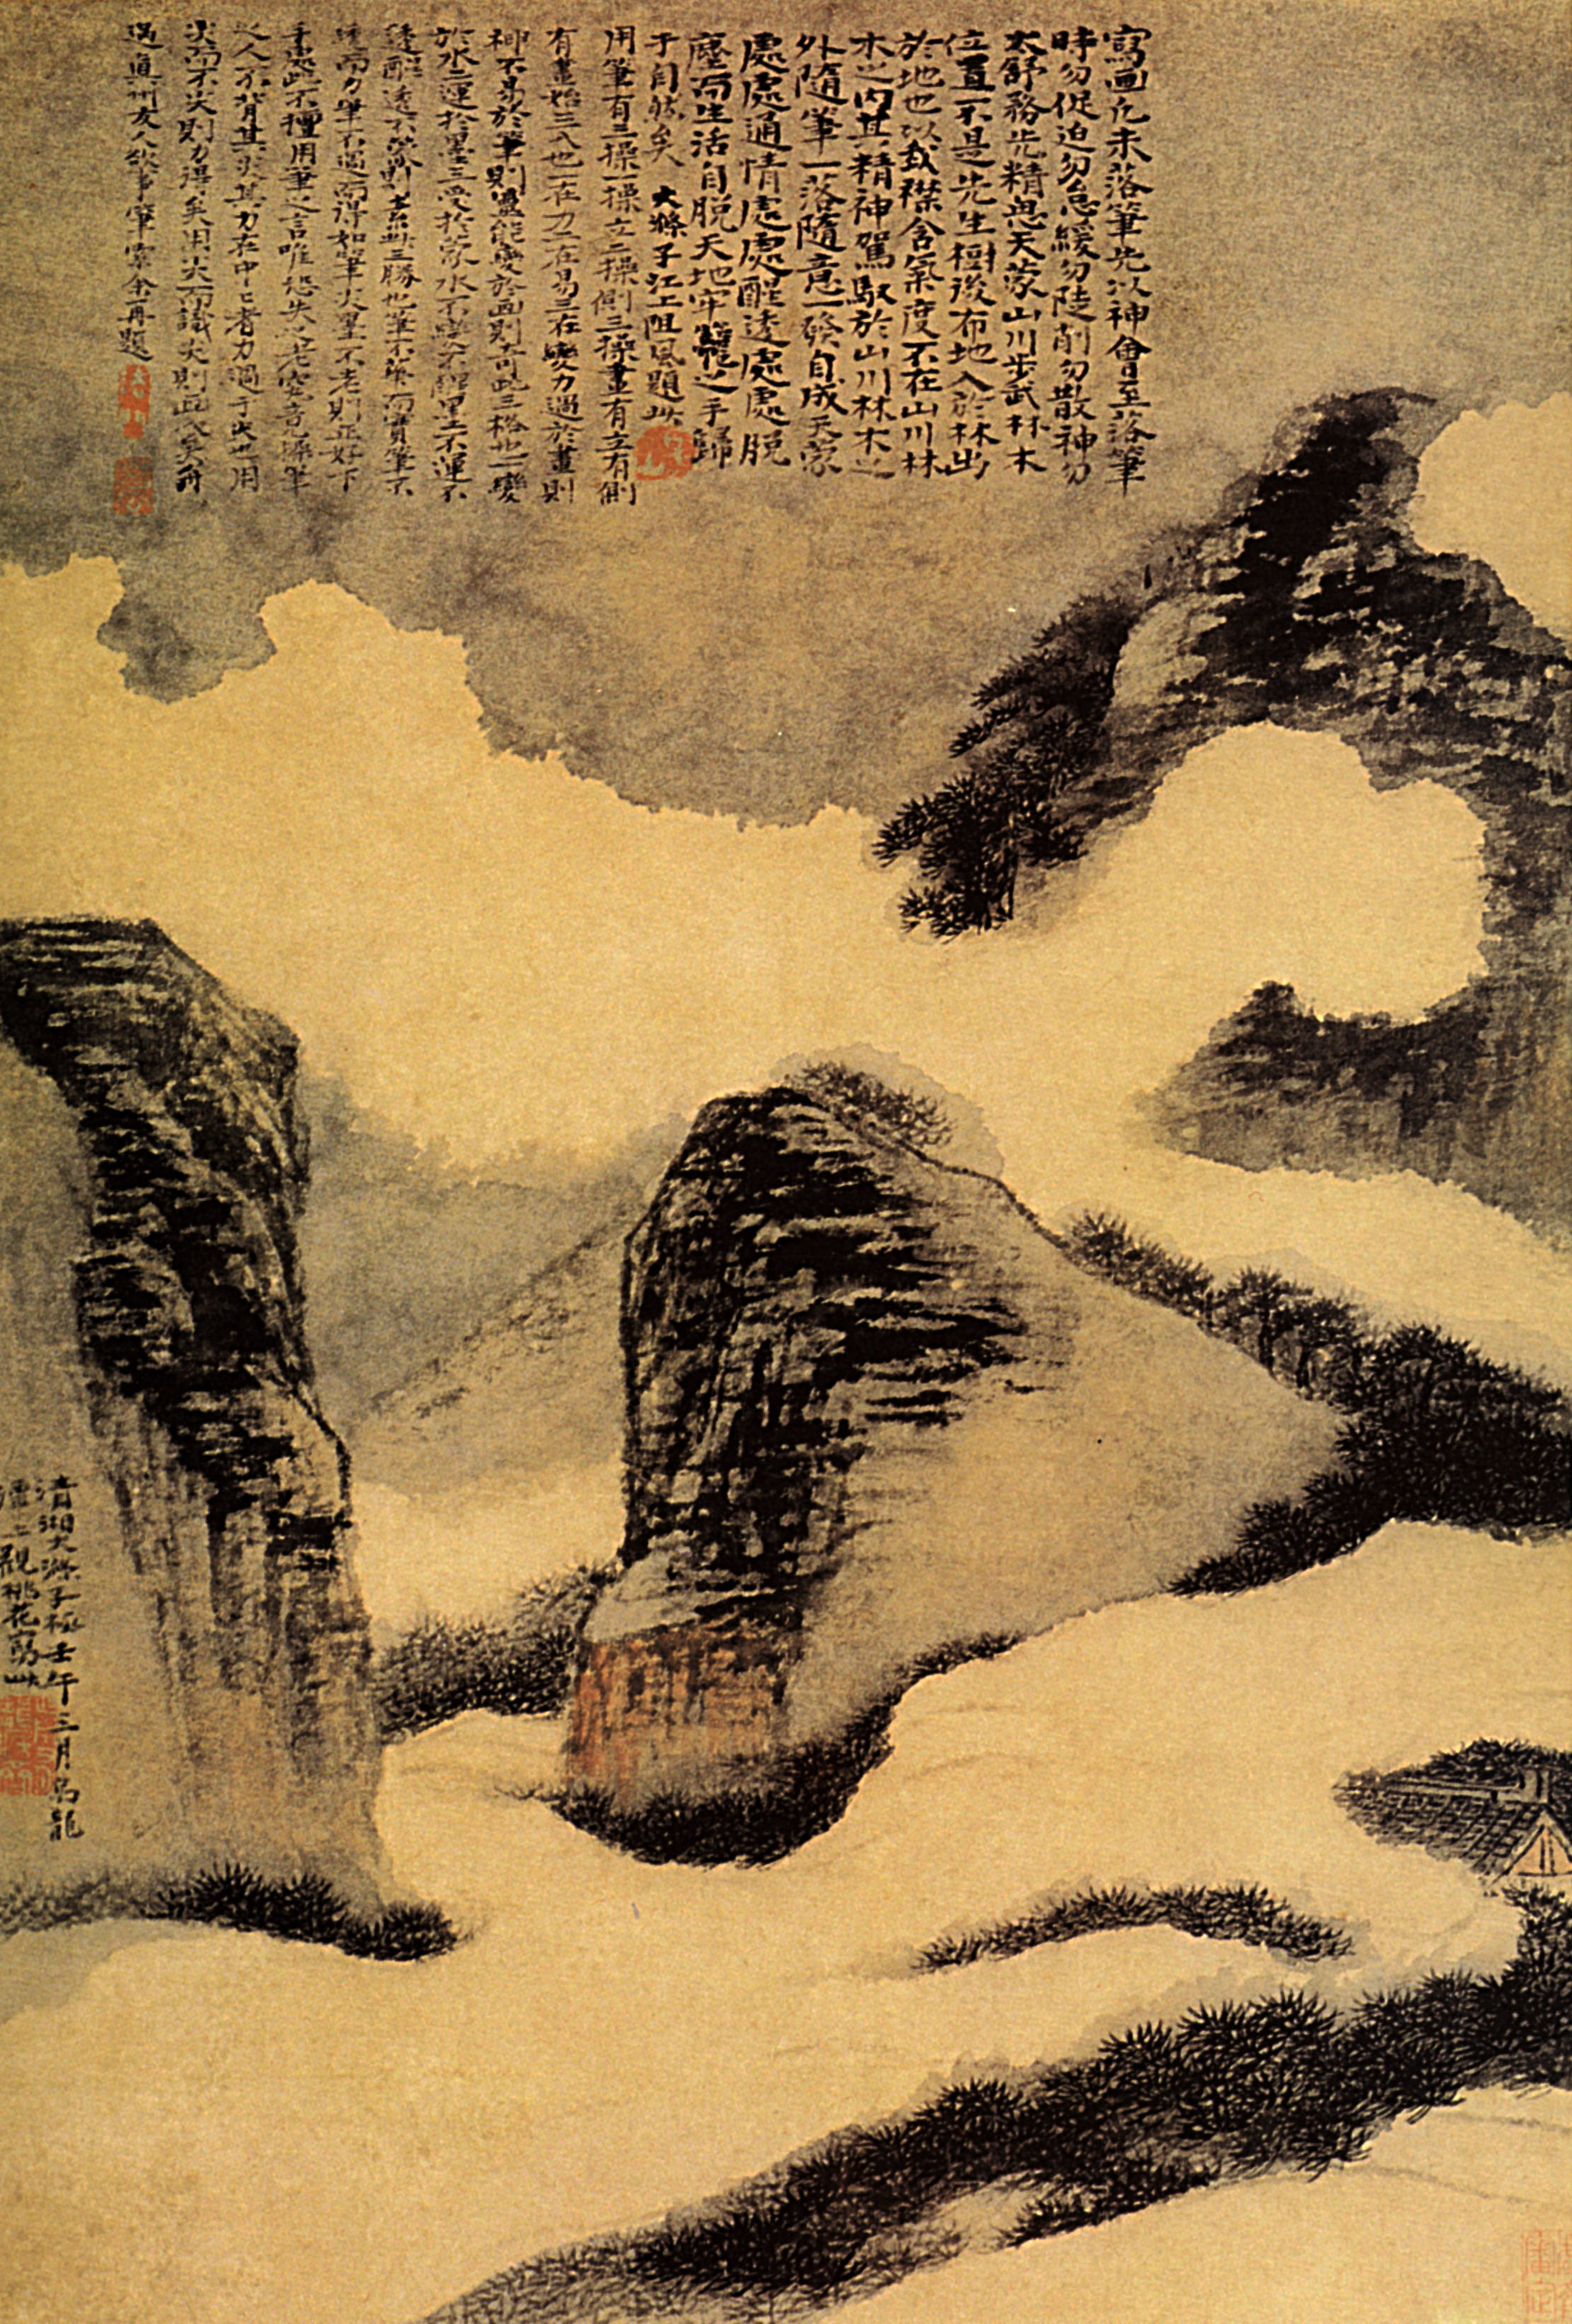 寫画凡未落筆先以神會至落筆
時勿促迫勿怠緩勿陡削勿散神勿
太舒務先精思天蒙山川步武林木
位置不是先生樹後布地入於林出
於地也以我襟含氣度不在山川林
木之內其精神駕馭於山川林木之
外隨筆一落隨意一發自成天蒙
處處通情處處醒透處處脫
塵而生活自脫天地牢籠之手歸
于自然矣 大滌子江上阻風題此
用筆有三操一操立二操側三操畫有立有側
有畫始三入也一在力二在易三在變力過於畫則
神不易於筆則靈能變於画則奇此三格也一變
於水二運於墨三受於蒙水不變不醒墨不運不
透醒透不蒙則素此三勝也筆不華而實筆不
透而力筆不過而得如筆尖墨不老則正好下
手處此不擅用筆之言唯恐失之老究竟操筆
之人不背其尖其力在中中者力過于尖也用
尖而不尖則力得矣用尖而識尖則画入矣舟
過真州友人事筆索余再題
清湘大滌子極壬午三月烏龍
潭上觀桃花寫此